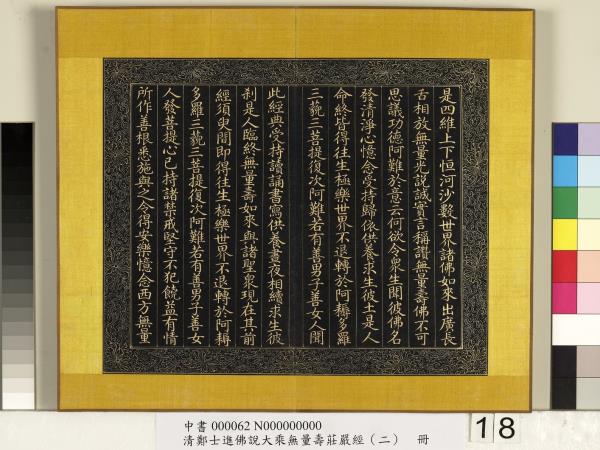 是四維上下恒河沙數世界諸佛如來出廣長
舌相放無量光說誠實言稱讚無量壽佛不可
思議功德阿難於意云何欲令衆生聞彼佛名
發清淨心憶念受持歸依供養求生彼土是人
命終皆得往生極樂世界不退轉於阿耨多羅
三藐三菩提復次阿難若有善男子善女人聞
此經典受持讀誦書寫供養晝夜相續求生彼
刹是人臨終無量壽如來與諸聖衆現在其前
經須臾間即得往生極樂世界不退轉於阿耨
多羅三藐三菩提復次阿難若有善男子善女
人發菩提心已持諸禁戒堅守不犯饒益有情
所作善根悉施與之令得安樂憶念西方無量
中書 000062 N000000000
清鄭士進佛說大乘無量壽莊嚴經（二） 冊
18